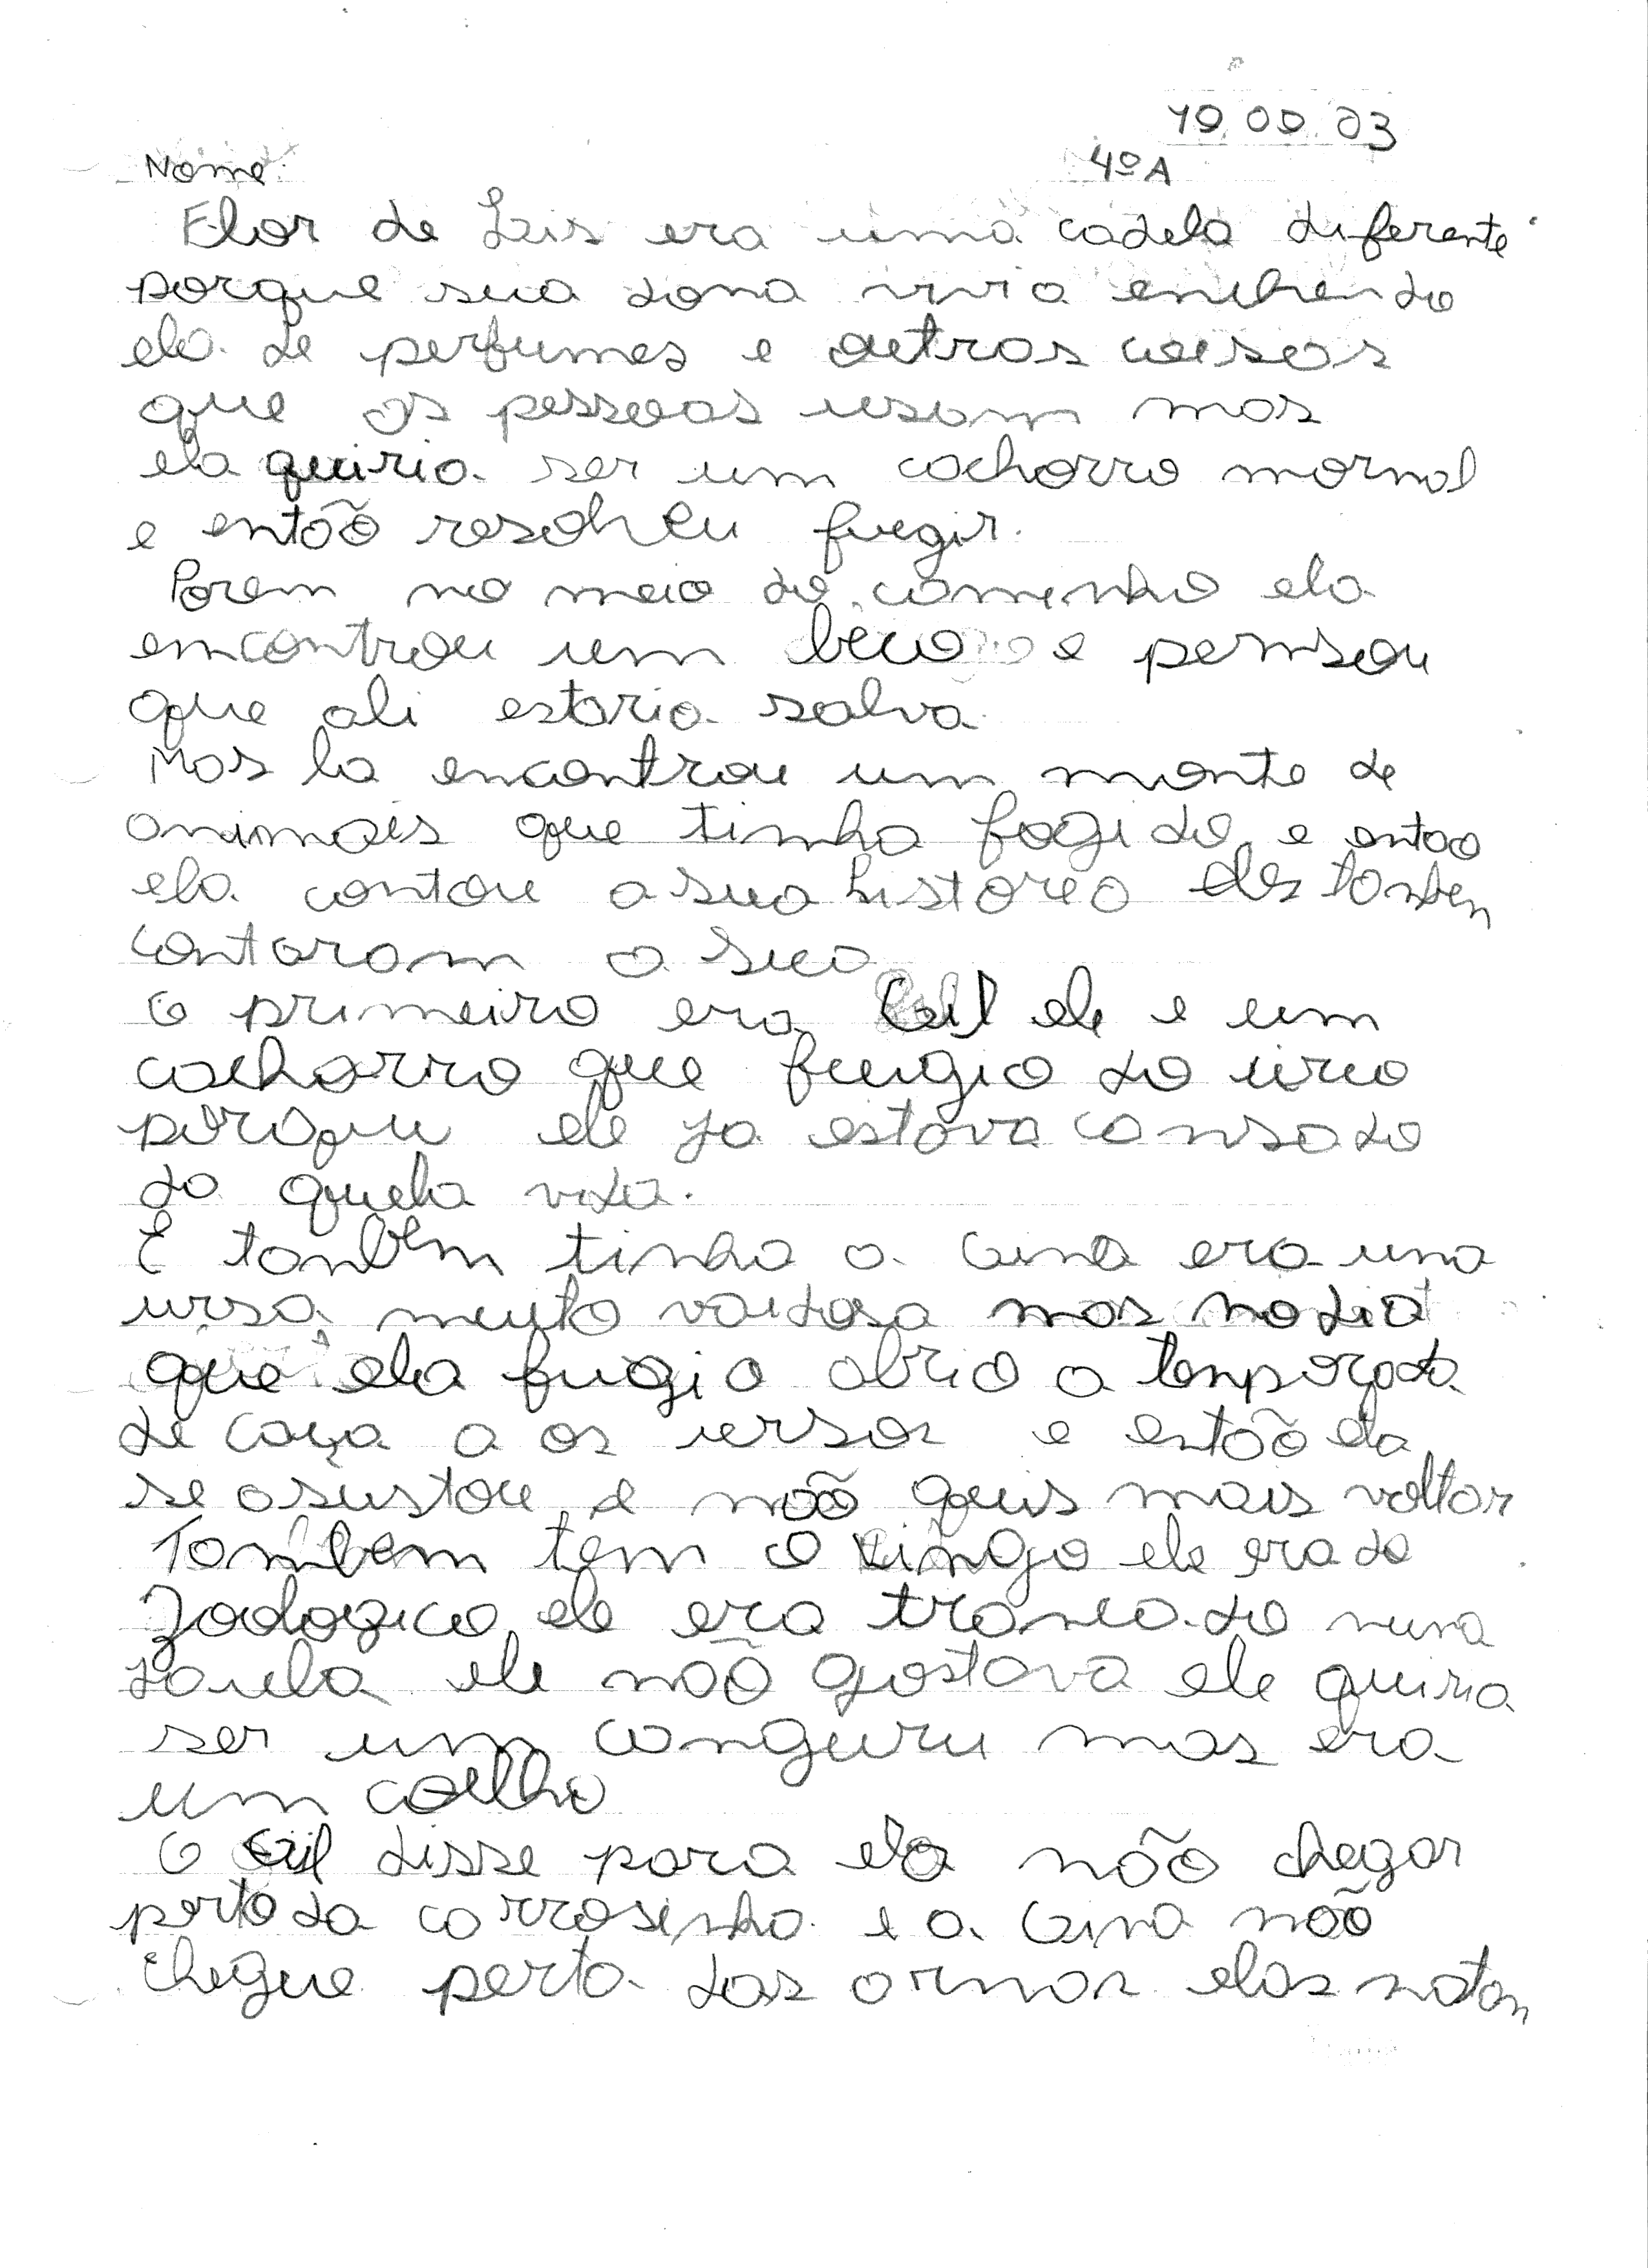 19.09.03
Nome: 4º A
Flor de Luis era uma cadela diferente
porque sua dona vivia enchendo
ela de perfumes e outras coisas
que as pessoas usam mas
ela quiria ser um cachorro mornal
e então resolveu fugir.
Porem no meio do caminho ela
encontrou um beco e pensou
que ali estaria salva
Mas la encontrou um monte de
animais que tinha fogido e entao
ela contou a sua historia eles tanben
contaram a sua
O primeiro era Cuil ele e um
cachorro que fuigio do circo
porque ele ja estava cansado
da quela vida.
E tanbem tinha a Guina era uma
ursa muito vaidosa mas no dia
que ela fugio abrio a tenporada
de caça a os ursos e então ela
se asustou e não quis mais voltar
Tambem tem o Lingo ele era do
Zoologico ele era trancado numa
jaula ele não gostava ele quiria
ser um canguru mas era
um coelho
O Cuil disse para ela não chegar
perto da carrosinha e a Guina não
chegue perto das armas elas matan